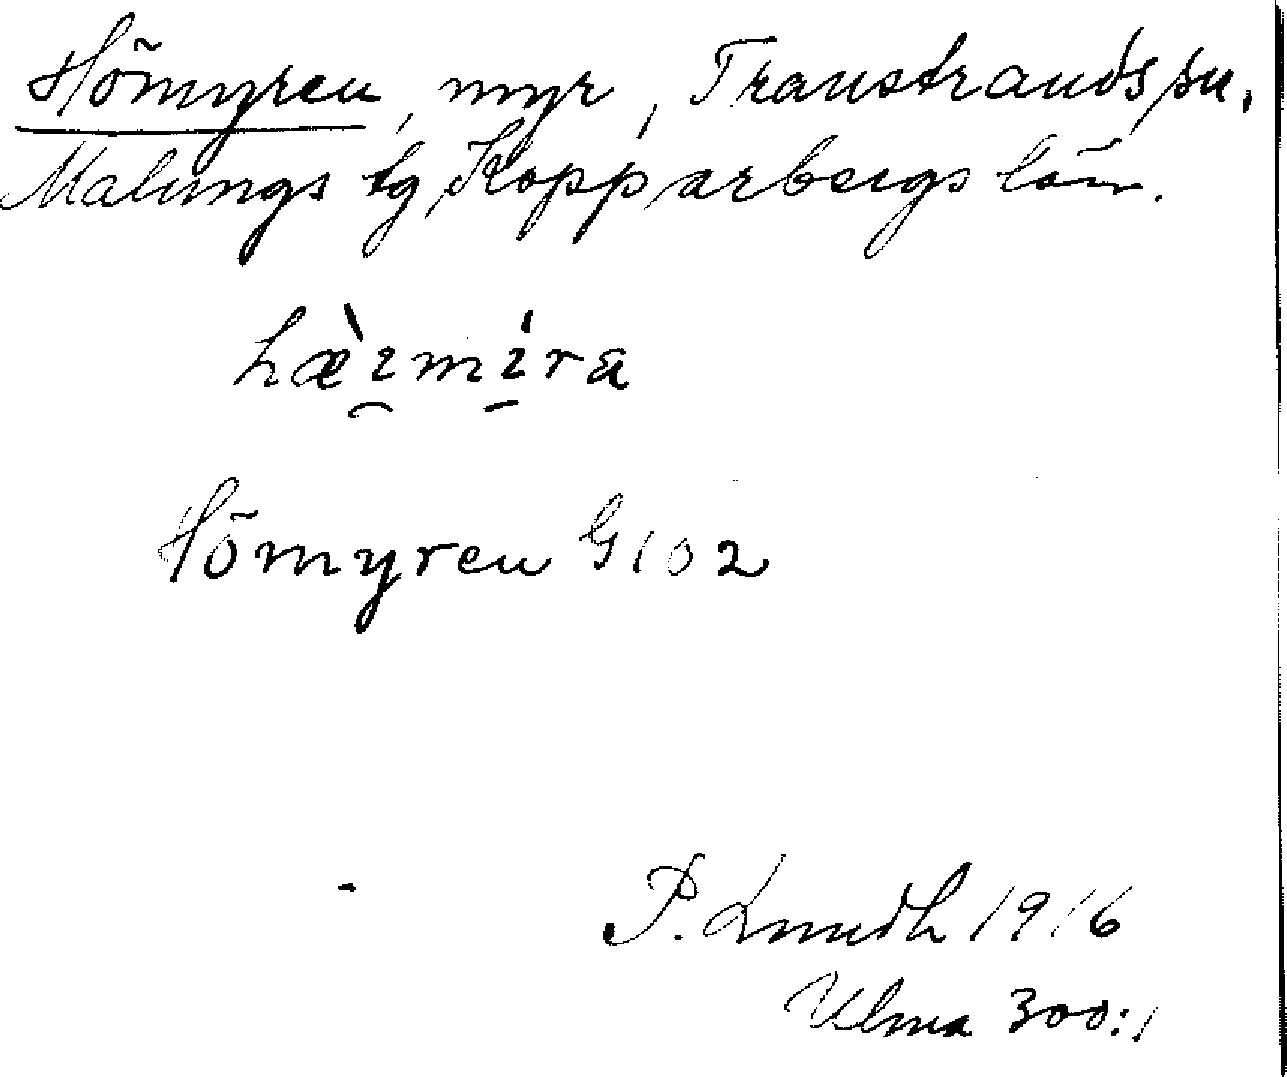 Hömyren, myr, Transtrands sn.
Malungs tg Kopparbergs län.
hæ̀ımı́ra
Hömyren G102
P. Lundh 1916
Ulma 300:1